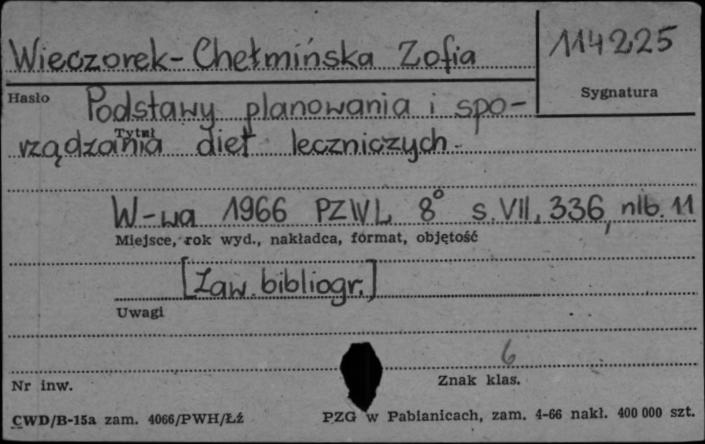 Wieczorek-Chełmińska Zofia
114225
Hasło
Sygnatura
Podstawy planowania i spo-
Tytuł
rządzania diet leczniczych.
W-wa 1966 PZWL 8° s. VII, 336, nlb. 11
Miejsce, rok wyd., nakładca, format, objętość
[Zaw. bibliogr.]
Uwagi
6
Nr inw.
Znak klas.
CWD/B-15a zam. 4066/PWH/Łź
PZG w Pabianicach, zam. 4-66 nakł. 400 000 szt.